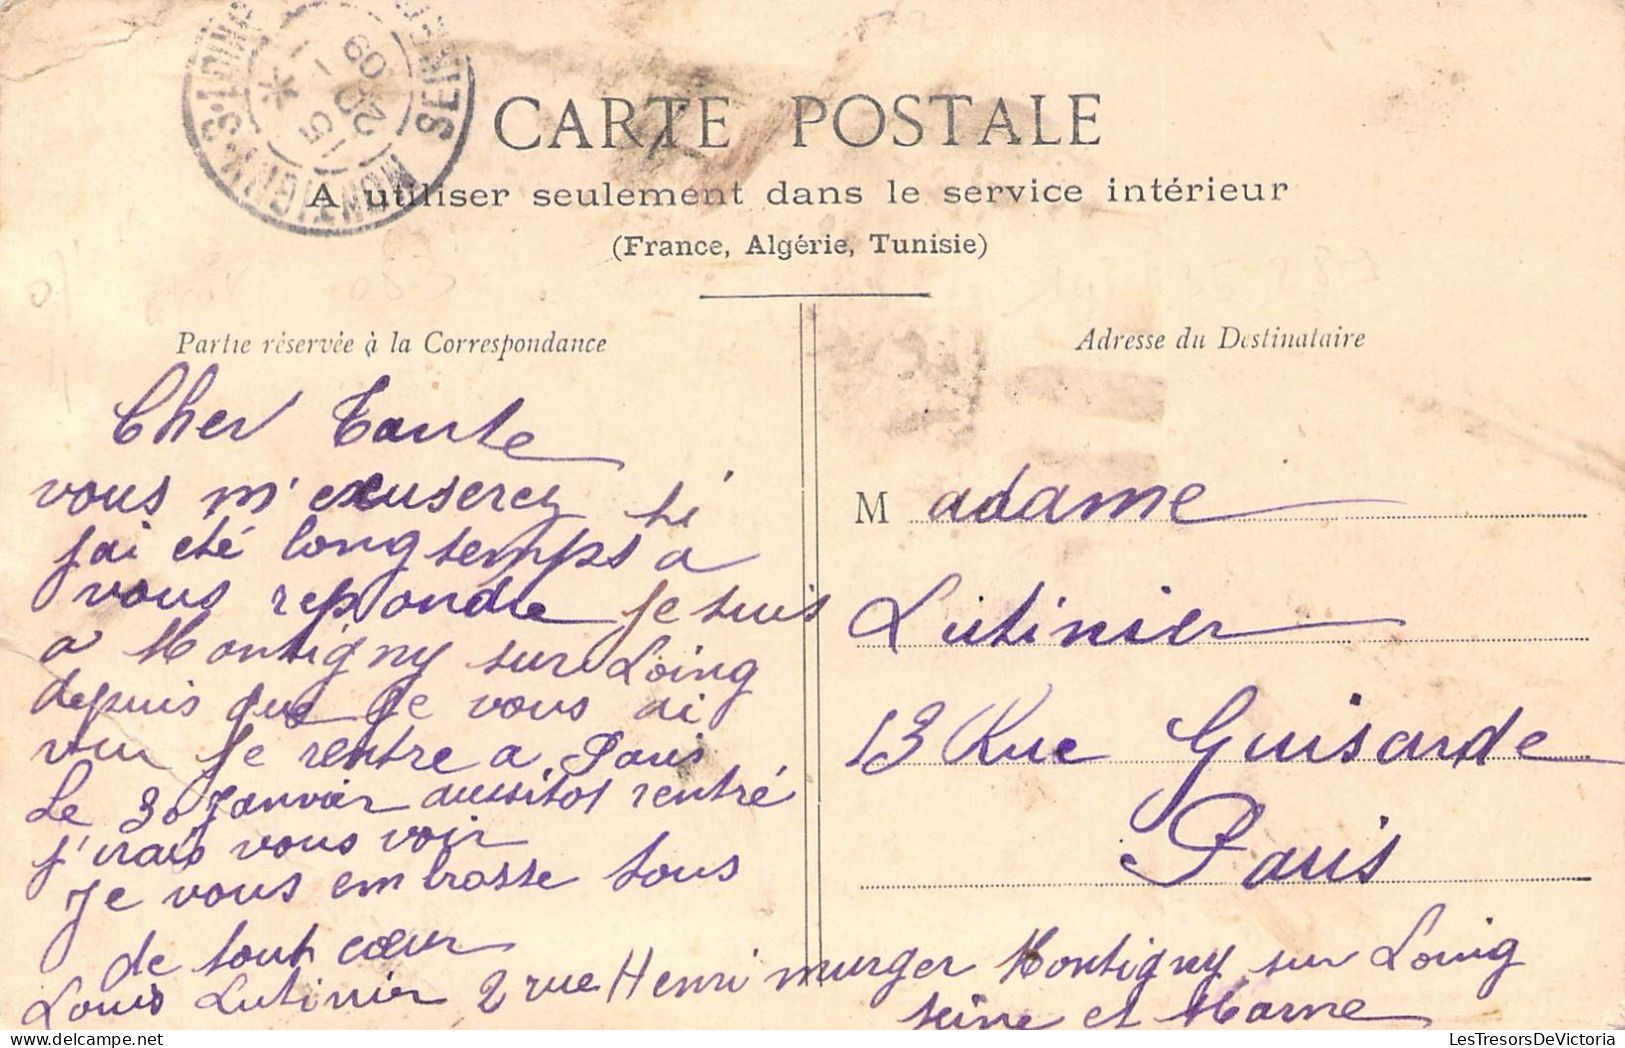 MONTIGNY-S-LOING
SEINE-ET-M
15
20 - 1
09
CARTE POSTALE
A utiliser seulement dans le service intérieur
(France, Algérie, Tunisie)
Partie réservée à la Correspondance
Cher Tante
vous m'excuserez si
j'ai eté longtemps a
vous repondre je suis
a Montigny sur Loing
depuis que je vous ai
vu je rentre a Paris
Le 30 Janvier aussitot rentré
j'irais vous voir
Je vous embrasse tous
de tout cœur
Louis Lutinier 2 rue Henri murger Montigny sur Loing
Seine et Marne
Adresse du Destinataire
Madame
Lutinier
13 Rue Guisarde
Paris
LesTresorsDeVictoria